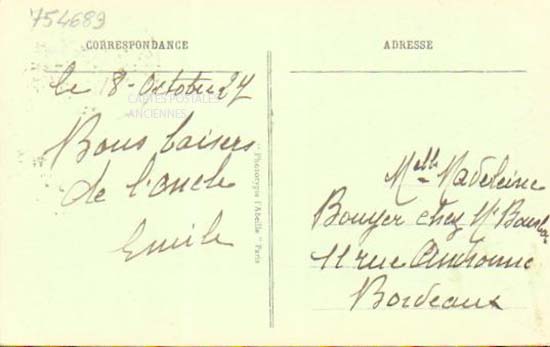 754689
CORRESPONDANCE
le 18-Octobre 27
CARTES POSTALES
ANCIENNES
Bons baisers
de l'oncle
Emile
" Phototypie l'Abeille " Paris
ADRESSE
Melle Madeleine
Bouyer chez Mr
11 rue
Bordeaux